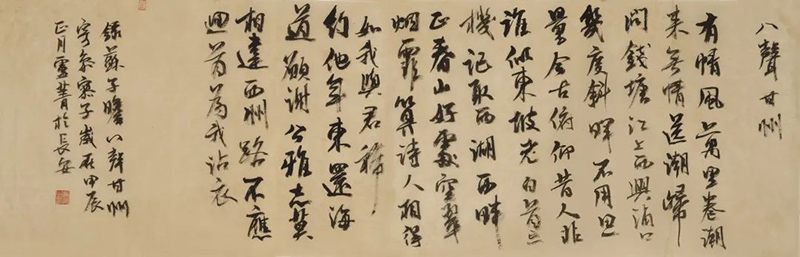 八聲甘州
有情風萬里卷潮
來無情送潮歸
問錢塘江上西興浦口
幾度斜暉不用思
量今古俯仰昔人非
誰似東坡老白首忘
機記取西湖西畔
正春山好處空翠
烟霏算詩人相得
如我與君稀
約他年東還海
道願謝公雅志莫
相違西州路不應
迴首為我沾衣
錄蘇子瞻八聲甘州
寄參寥子歲在甲辰
正月於長安